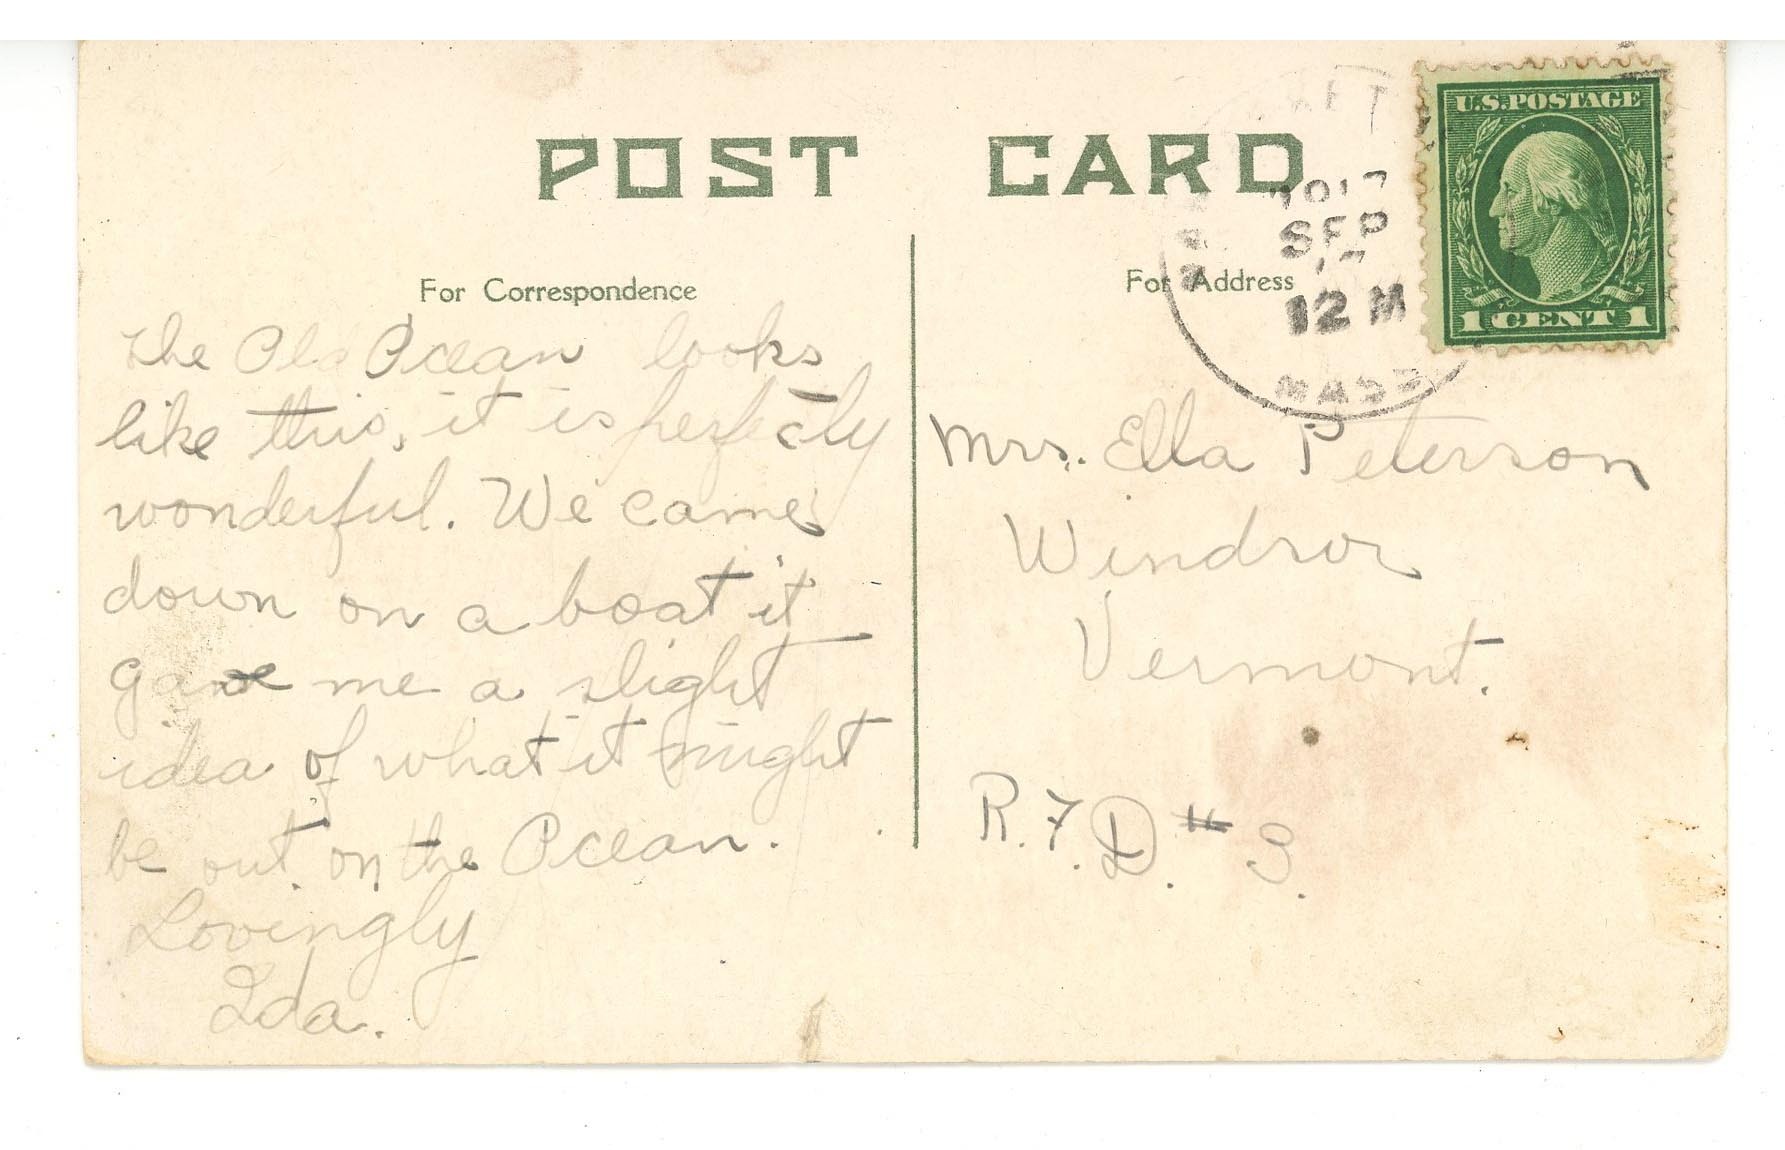 POST CARD
For Correspondence
The Old Ocean looks
like this, it is perfectly
wonderful. We came
down on a boat it
gave me a slight
idea of what it might
be out on the Ocean.
Lovingly
Ida.
SEP
12 M
MASS
U.S. POSTAGE
1 CENT 1
For Address
Mrs. Ella Peterson
Windsor
Vermont.
R.F.D. # 3.